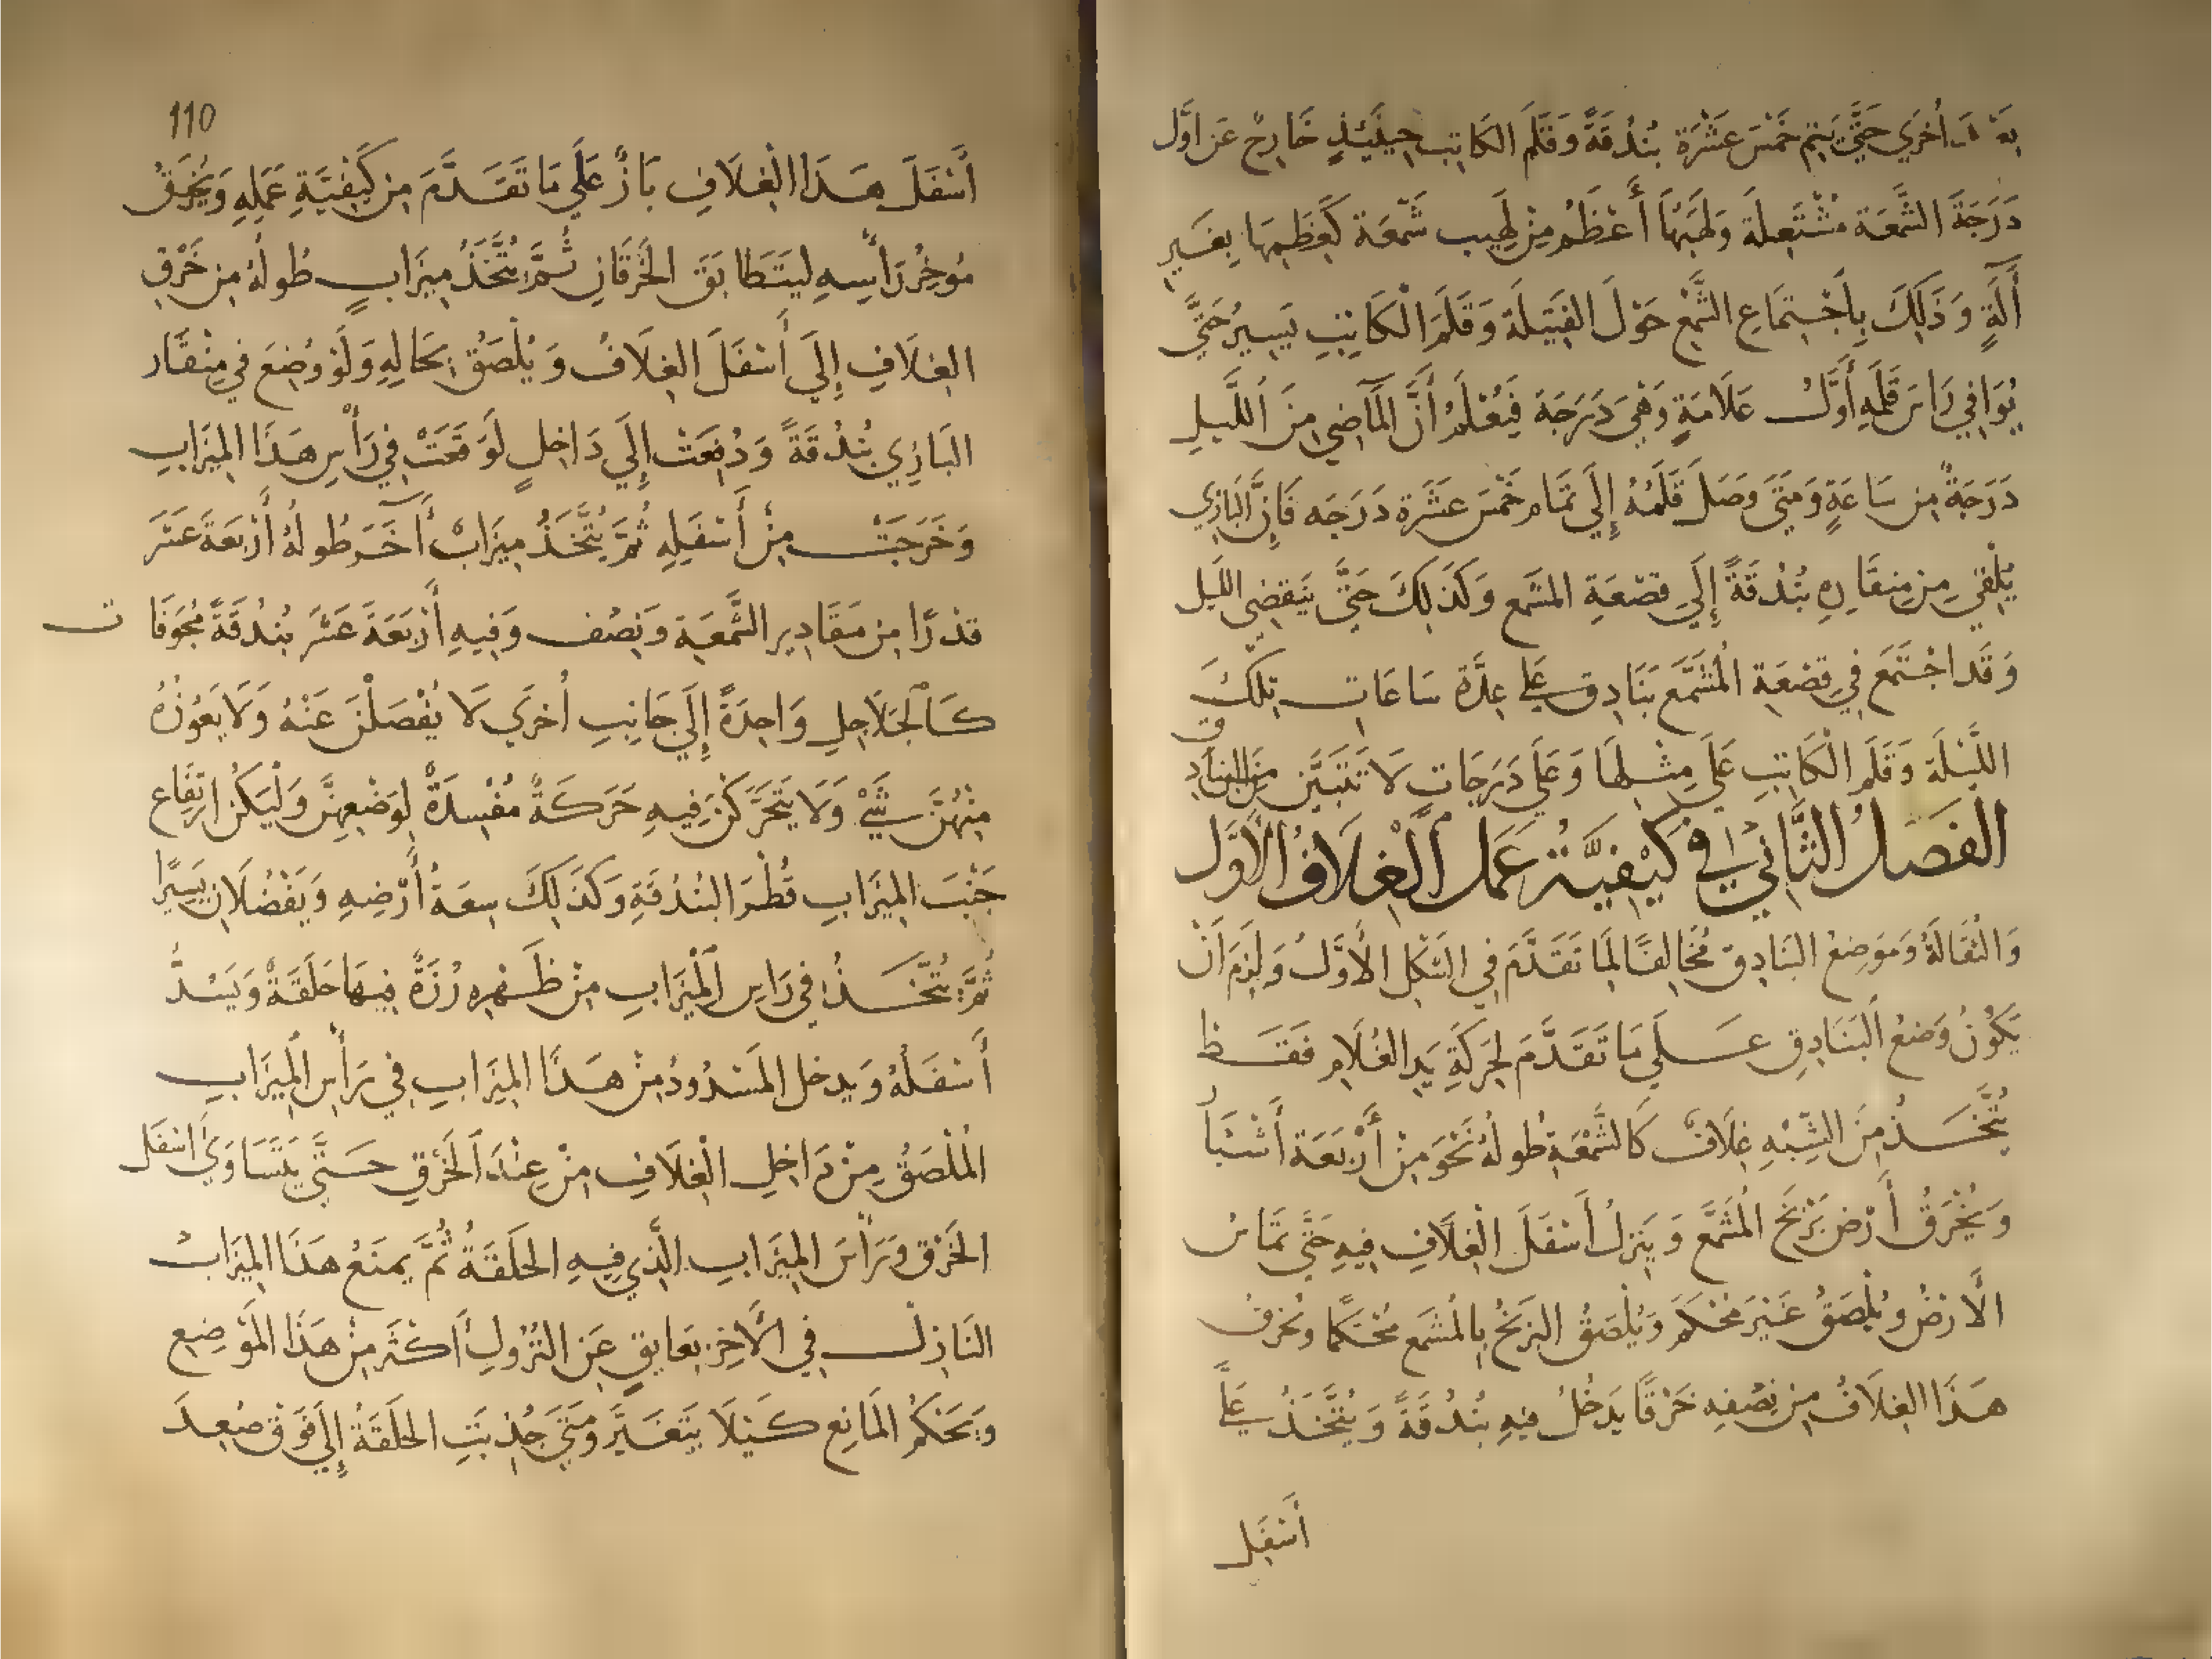 بَعْدَ اُخرَي حَتَّي يَتِم خَمْسَ عَشْرَة بُنْدُقَةً وَقَلَم الكَاتِب حِينَئِذٍ خَارِجٌ عَن اَوَّل
دَرَجَةَ الشَّمْعَة مُشْتَعِلَة وَلَهَبُهَا أَعْظَمُ مِنْ لَهِيب شَمْعَة كَعِظَمِهَا بِغَيرِ
أَلَةٍ وَذَلِكَ بِاجْتِمَاعِ الشَّمْع حَوْلَ الفَتِيلَة وَقَلَمَ الْكَاتِبِ يَسِيرُ حَتَّي
يُوَافِي رَاسَ قَلَمِهِ أَوَّلُ عَلَامَةٍ وَهْيَ دَرَجَة فَيُعْلَمُ أَنَّ المَاضِي مِنَ اللَّيلِ
دَرَجَةٌ مِن سَاعَةٍ وَمَتَي وَصَلَ قَلَمُهُ إِلَي تَمَام خَمْسَ عَشَرَة دَرَجَه فَاِنَّ البَازِي
يُلْقِي مِن مِنقَارِهِ بُنْدُقَةً إِلَي قَصْعَةِ المشمع وَكَذَلِكَ حَتَّي يَنقَضِي اللَيل
وَقَد اجْتَمَعَ فِي قَصْعَةِ الْمُشَمَّع بَنَادِق عَلي عِدَّة سَاعَات تِلكَ
اللَّيْلَة وَقَلَم الْكَاتِبِ عَلَي مِثْلِهَا وَعَلَي دَرَجَاتٍ لَا تَتَبَيَّن مِن البَنَادِق
الفَصَلُ الثَّانِي فِي كَيْفِيَّةُ عَمَل الْغِلَافُ الأَوَّل
وَالثُقَالَةُ وَمَوضِعْ البَنَادِق مُخَالِفًا لِمَا تَقَدَّمَ فِي الشَكْل الأَوَّلُ وَلَزِمَ اَنْ
يَكُونُ وَضعُ البَنَادِقِ عَلَي مَا تَقَدَّمَ لِحَرَكَةِ يَدِ الغُلَامِ فَقَط
يُتَّخَذُ مِنَ الشِّبْهِ غِلَافٌ كَالشَّمْعَةِ طُولَهُ نَحْوَ مِنْ أَرْبَعَة أَشْبَا
وَيُخْرَقُ أَرْض بَرْبَخ الْمُشَمَّع وَيَنزِلُ أَسْفَلَ الْغِلَافِ فِيهِ حَتَّي تَمَاسُ
الأَرْضُ وَيُلْصَقُ غَيْرَ مُحْكَم وَيُلْصَقُ البَرْبَخُ بِالْمُشَمع مُحْكَمًا وَيُخرَقُ
هَذَا الغِلَافُ مِنْ نِصْفِهِ خَرْقًا يَدخُلُ فِيهِ بُنْدُقَةً وَيُتَّخَذُ عَلَي
أَسْفَل
110
أَسْفَلَ هَذَا الْغِلَافِ بَازٌ عَلَي مَا تَقَدَّمَ مِن كَيفِيَّةِ عَمَلِهِ وَيُخرَقُ
مُوَخِرُ رَأسِهِ لِيَتَطَابَقَ الخَرقَانِ ثُمَّ يُتَّخَذُ مِيزَابٍ طُولُهُ مِن خَرْقِ
الغِلَافِ إِلَي أَسْفَلَ الغِلَافُ وَيُلْصَقُ بِحَالِهِ وَلَوْ وُضِعَ فِي مِنْقَار
البَازِي بُنْدُقَةً وَدُفِعَتْ إِلَي دَاخِلٍ لَوَقَعَتْ فِي رَأْسِ هَذَا المِيزَابِ
وَخَرَجَتْ مِنْ أَسْفَلِهِ ثُمَّ يُتَّخَذُ مِيزَابٌ أَخَر طُولُهُ أَرْبَعَةَ عَشَرَ
قَدْرًا مِن مَقَادِيرِ الشَّمعَة وَنِصْف وَفِيهِ أَرْبَعَةَ عَشَر بُنْدُقَةً مُجَوَفَات
كَالْجَلَاجِلِ وَاحِدَةً إِلَي جَانِبِ اُخرَي لَا يُفْصَلْنَ عَنْهُ وَلَا يَعُوزُهُ
مِنْهُنَّ شَيْءٌ وَلَا يَتَحَرَّكْنَ فِيهِ حَرَكَةً مُفْسِدَةٌ لِوَضْعِهِنَّ وَلْيَكُن ارتِفَاع
جَنْبَ المِيزَابِ قُطْرَ البُنْدُقَةِ وَكَذَلِكَ سِعَةُ أَرْضِهِ وَيَفْضُلَانِ يَسِيرًا
ثُمَّ يُتَّخَذُ فِي رَاسِ الْمِيزَابِ مِنْ ظَهْرِهِ رُزَةٌ فِيهَا حَلَقَةٌ وَيَسُدُّ
أَسْفَلُهُ وَيدخل المَسْدُودُ مِنْ هَذَا المِيزَابِ فِي رَأْسِ الْمِيزَابِ
الْمُلْصَقُ مِنْ دَاخِلِ الْغِلَافِ مِنْ عِنْدَ الْخَرْقِ حَتَّي يَتَسَاوَي اَسْفَل
الخَرْق وَرَأْسَ المِيزَابِ الَّذِي فِيهِ الحَلَقَةُ ثُمَّ يمنَعُ هَذَا المِيزَابُ
النَازِلُ فِي الأَخِرِ بِعَايِقٍ عَنِ النُزُولِ أَكثَرَ مِنْ هَذَا المَوضِعِ
وَيَحْكُمُ المَانِع كَيْلَا يَتَغَيَّرَ وَمَتَي جُذِبَتِ الحَلَقَةُ إِلَي فَوْق صُعِدَ